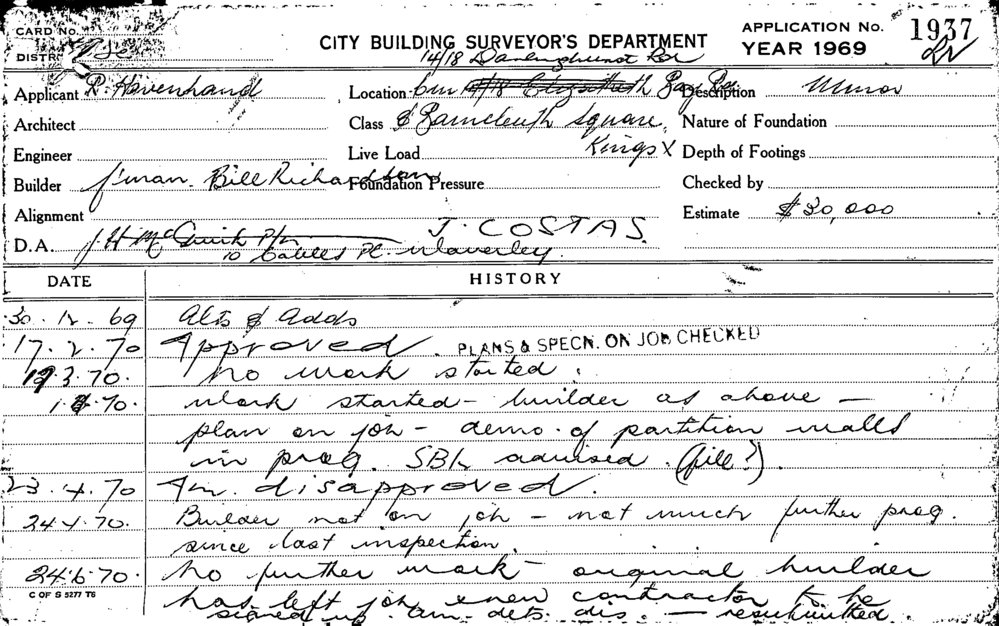 CARD No.
CITY BUILDING SURVEYOR'S DEPARTMENT
APPLICATION No. 1937
DISTR
14/18 Darlinghurst Rd
YEAR 1969
Applicant R. Havenhand
Location Cnr 14/18 Elizabeth Bay Rd
Description Minor
Architect
Class & Barncleuth Square,
Nature of Foundation
Engineer
Live Load Kings X
Depth of Footings
Builder f'man. Bill Richardson
Foundation Pressure
Checked by
Alignment
J. COSTAS.
Estimate $30,000
D.A. J. H. McGuirk P/L
10 Pl. Waverley.
DATE HISTORY
30.12.69 Alts & Adds
17.2.70 Approved. PLANS & SPECN. ON JOB CHECKED
12.3.70. No work started.
1.4.70. Work started - builder as above -
plan on job - demo. of partition walls
in prog. SBI advised. (Gill?).
23.4.70 Am. disapproved.
24.4.70. Builder not on job - not much further prog.
since last inspection.
24.6.70. No further work - original builder
C OF S 5277 T6
has left job & new contractor to be
signed up. Am. dets. dis. - resubmitted.